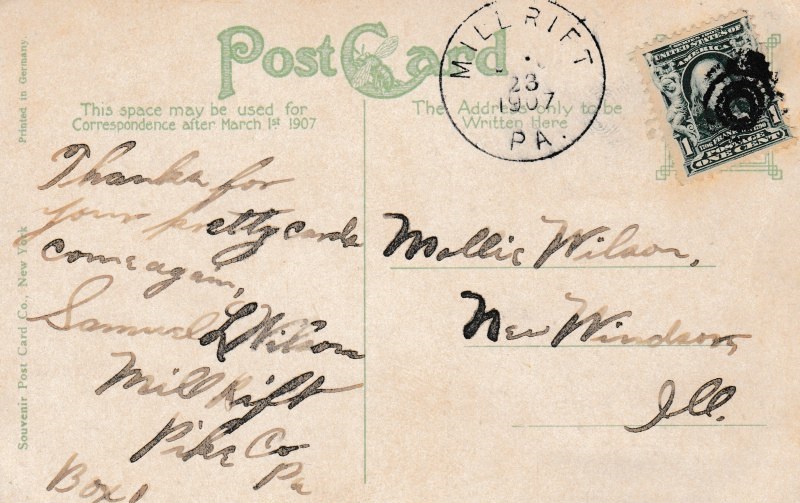 Post Card
This space may be used for
Correspondence after March 1st 1907
The Address only to be
Written Here
MILL RIFT
23
1907
PA.
UNITED STATES OF
AMERICA
1 1
POSTAGE
ONE CENT
Printed in Germany.
Souvenir Post Card Co., New York
Thanks for
your pretty cards
come again,
Samuel L Wilson
Mill Rift
Pike Co
Pa
Box 1
Mollie Wilson,
New Windsor,
Ill.